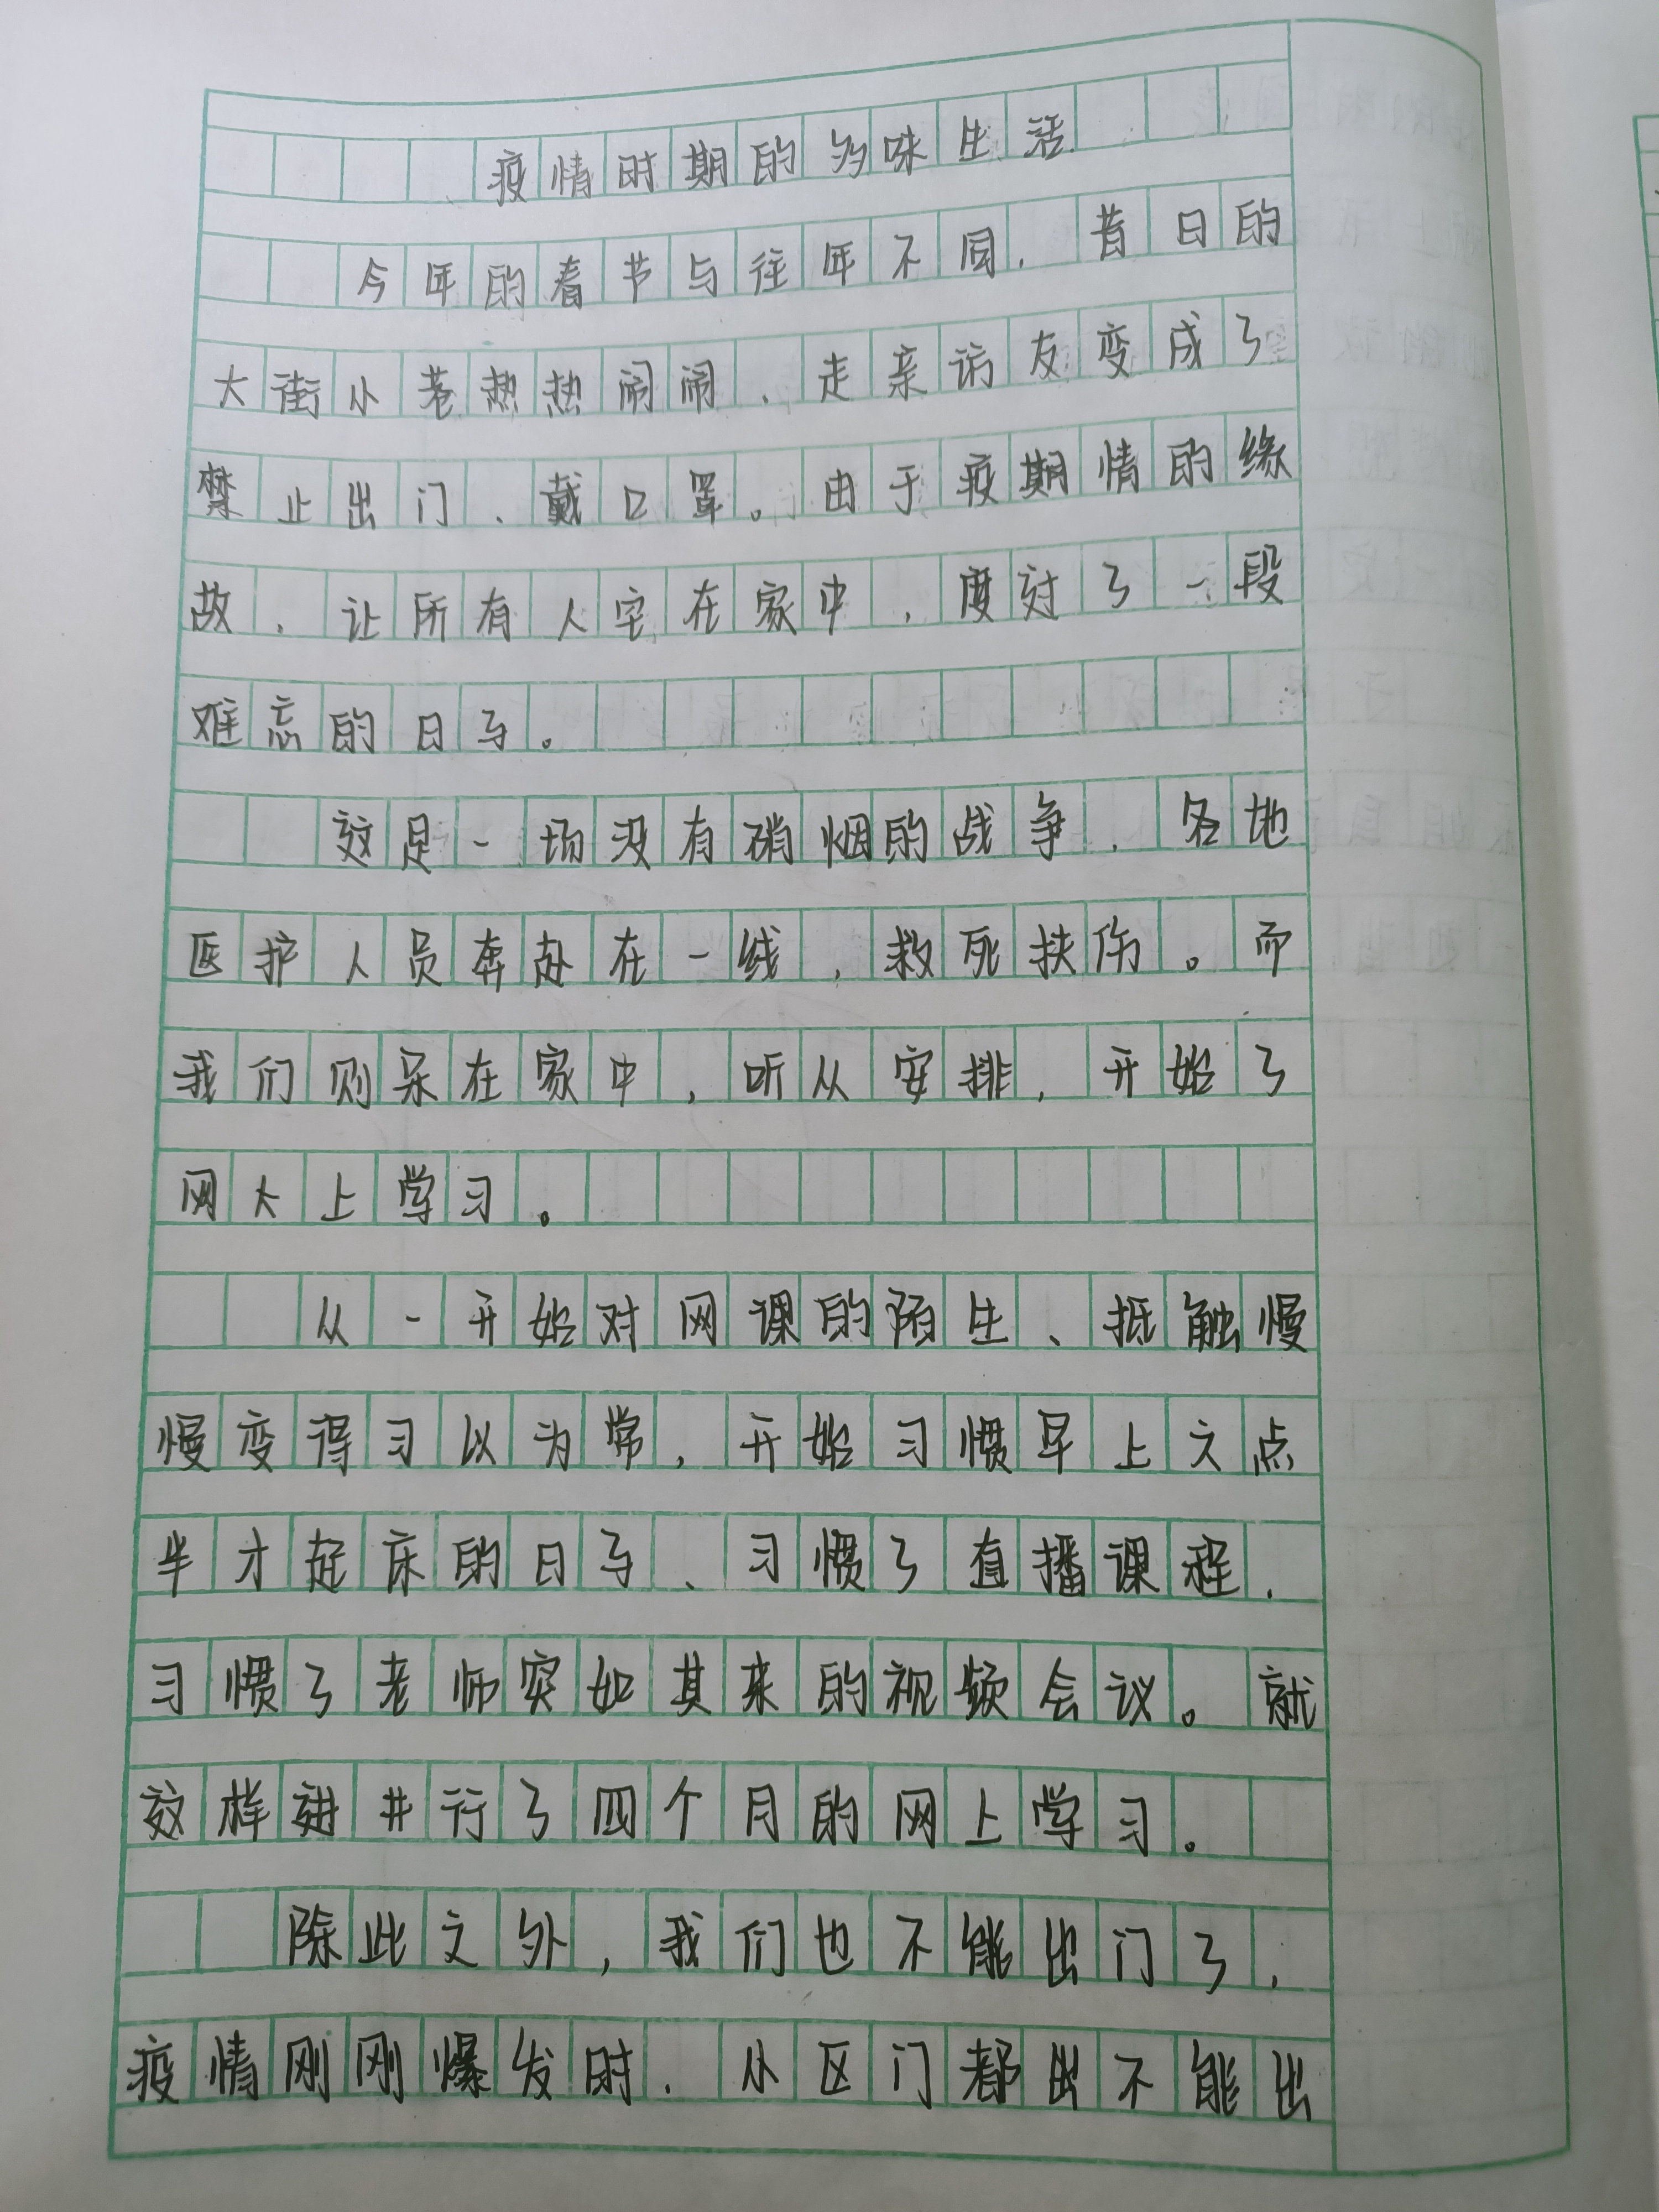 疫情时期的多味生活
今年的春节与往年不同，昔日的
大街小巷热热闹闹，走亲访友变成了
禁止出门、戴口罩。由于疫期情的缘
故，让所有人宅在家中，度过了一段
难忘的日子。
这是一场没有硝烟的战争，各地
医护人员奔赴在一线，救死扶伤。而
我们则呆在家中，听从安排，开始了
网大上学习。
从一开始对网课的陌生、抵触慢
慢变得习以为常，开始习惯早上六点
半才起床的日子、习惯了直播课程，
习惯了老师突如其来的视频会议。就
这样进并行了四个月的网上学习。
除此之外，我们也不能出门了，
疫情刚刚爆发时，小区门都出不能出